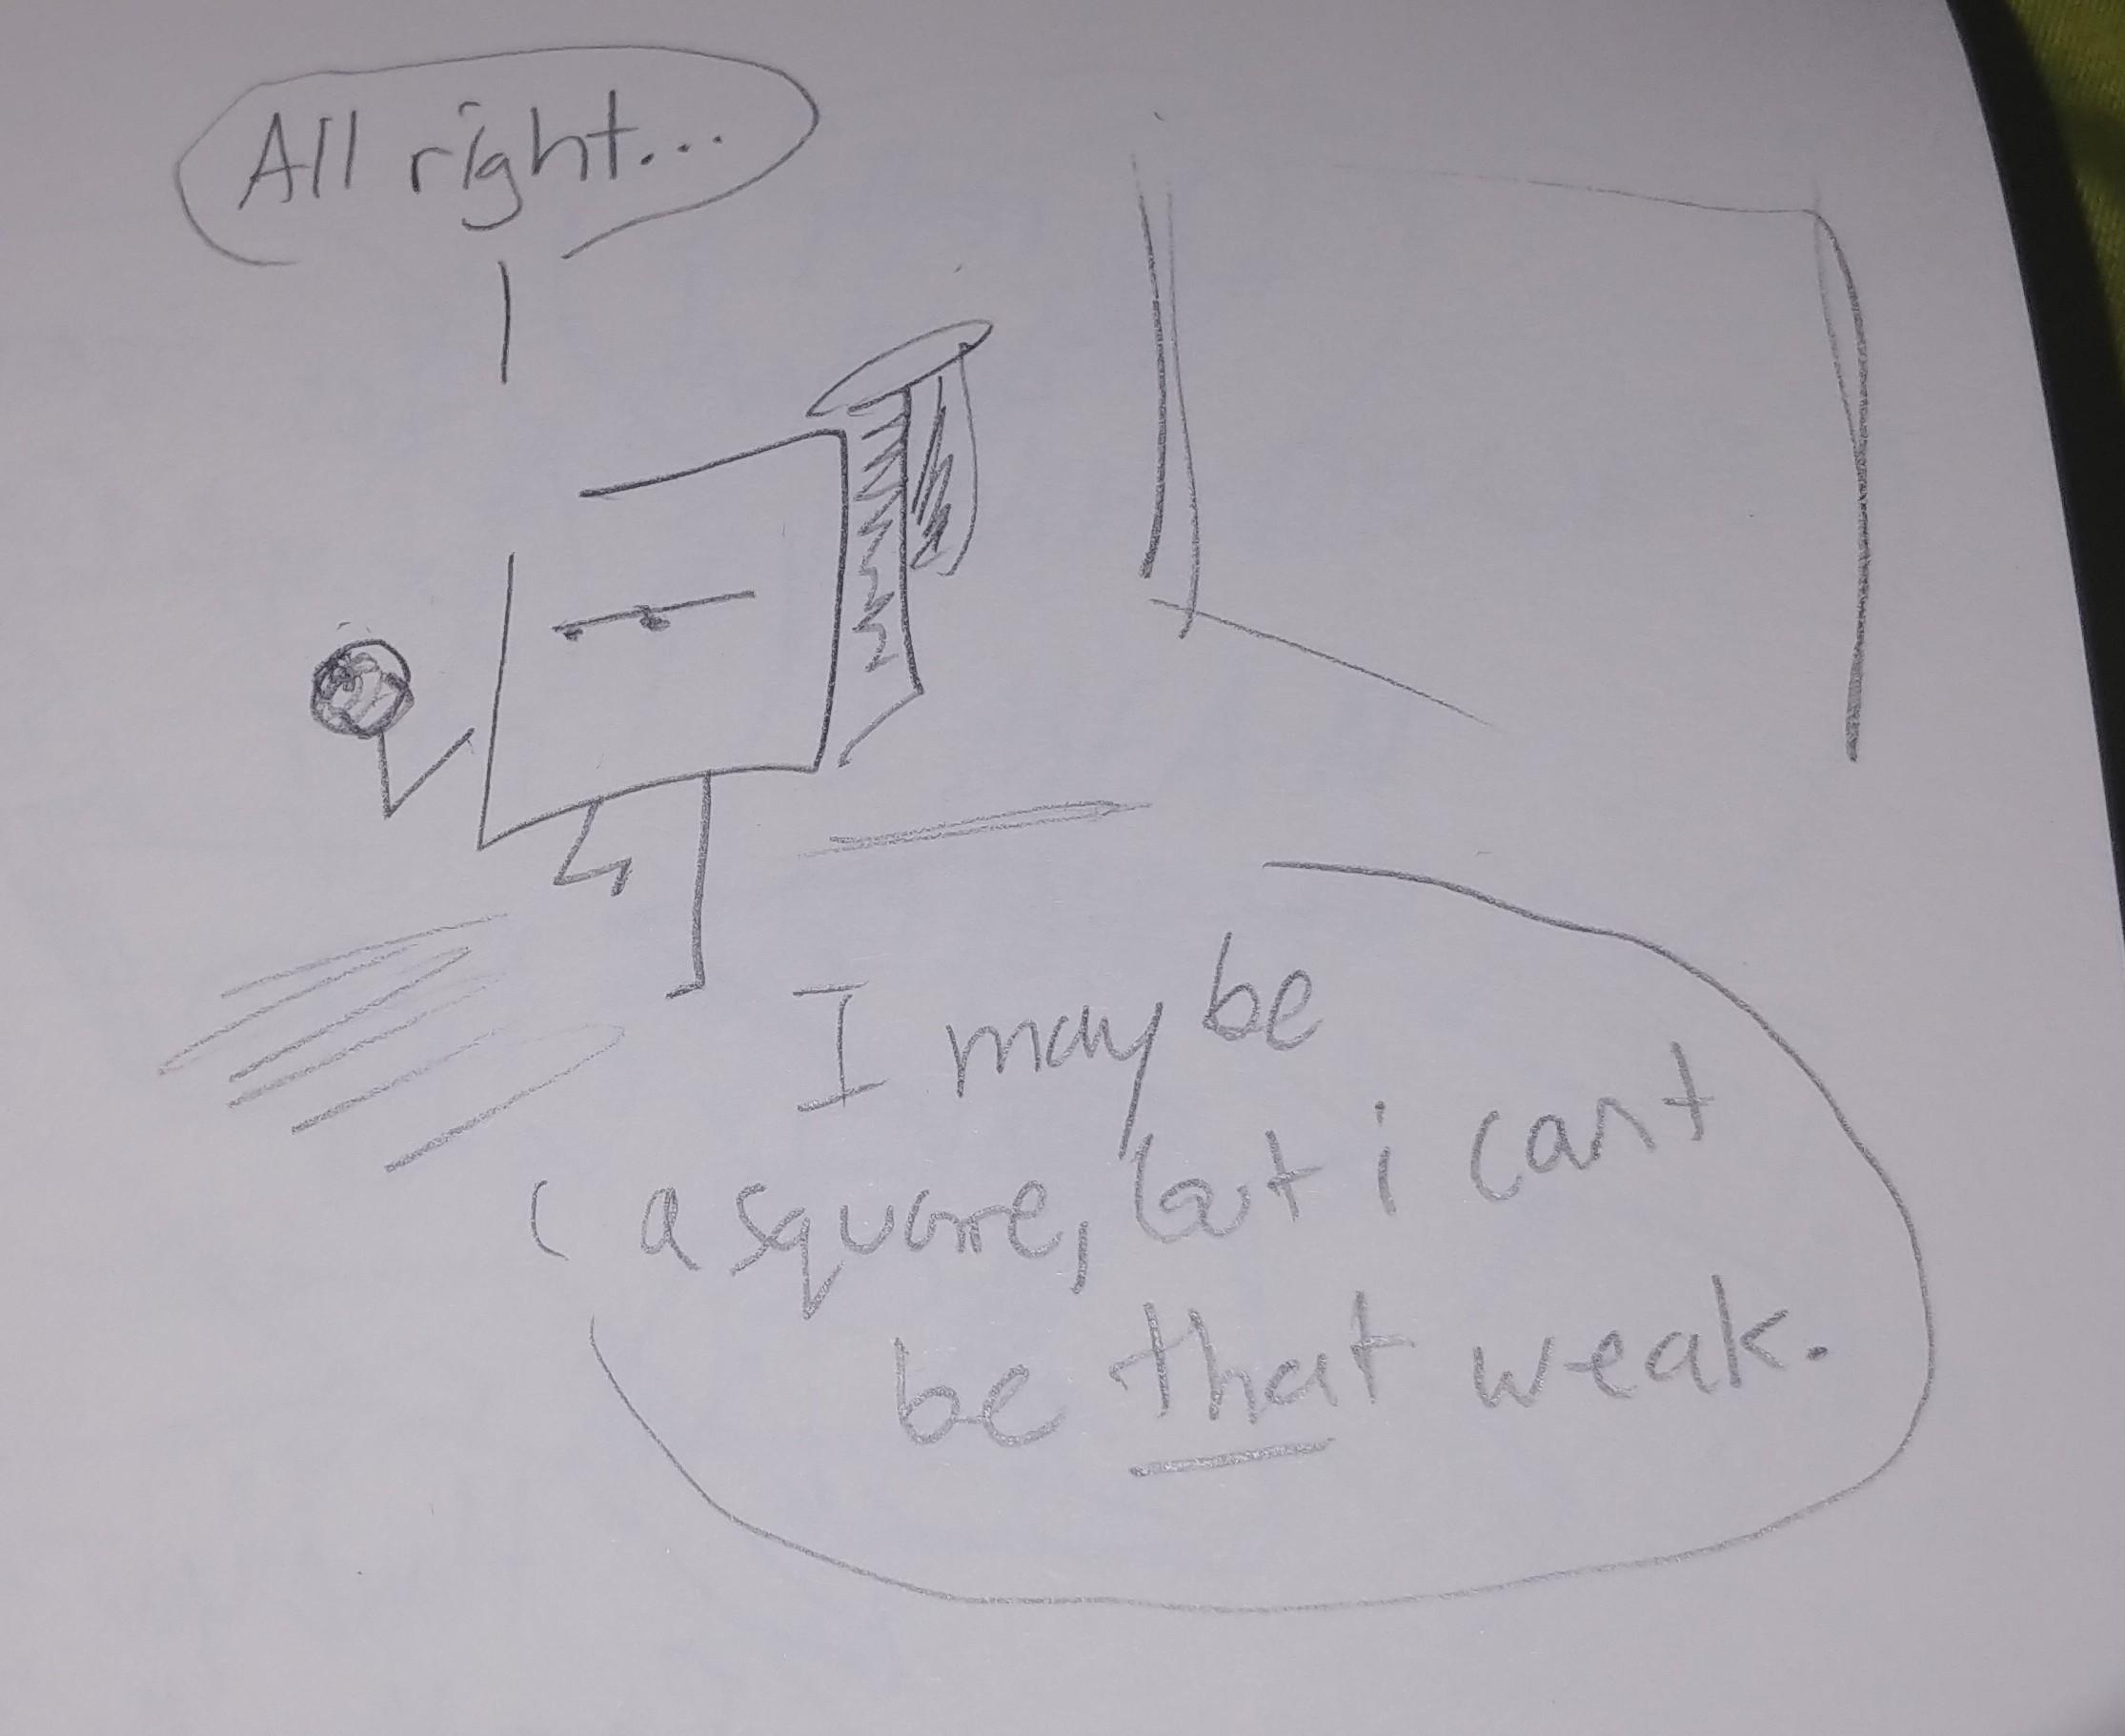 All right...
I may be
a square, but i cant
be that weak.